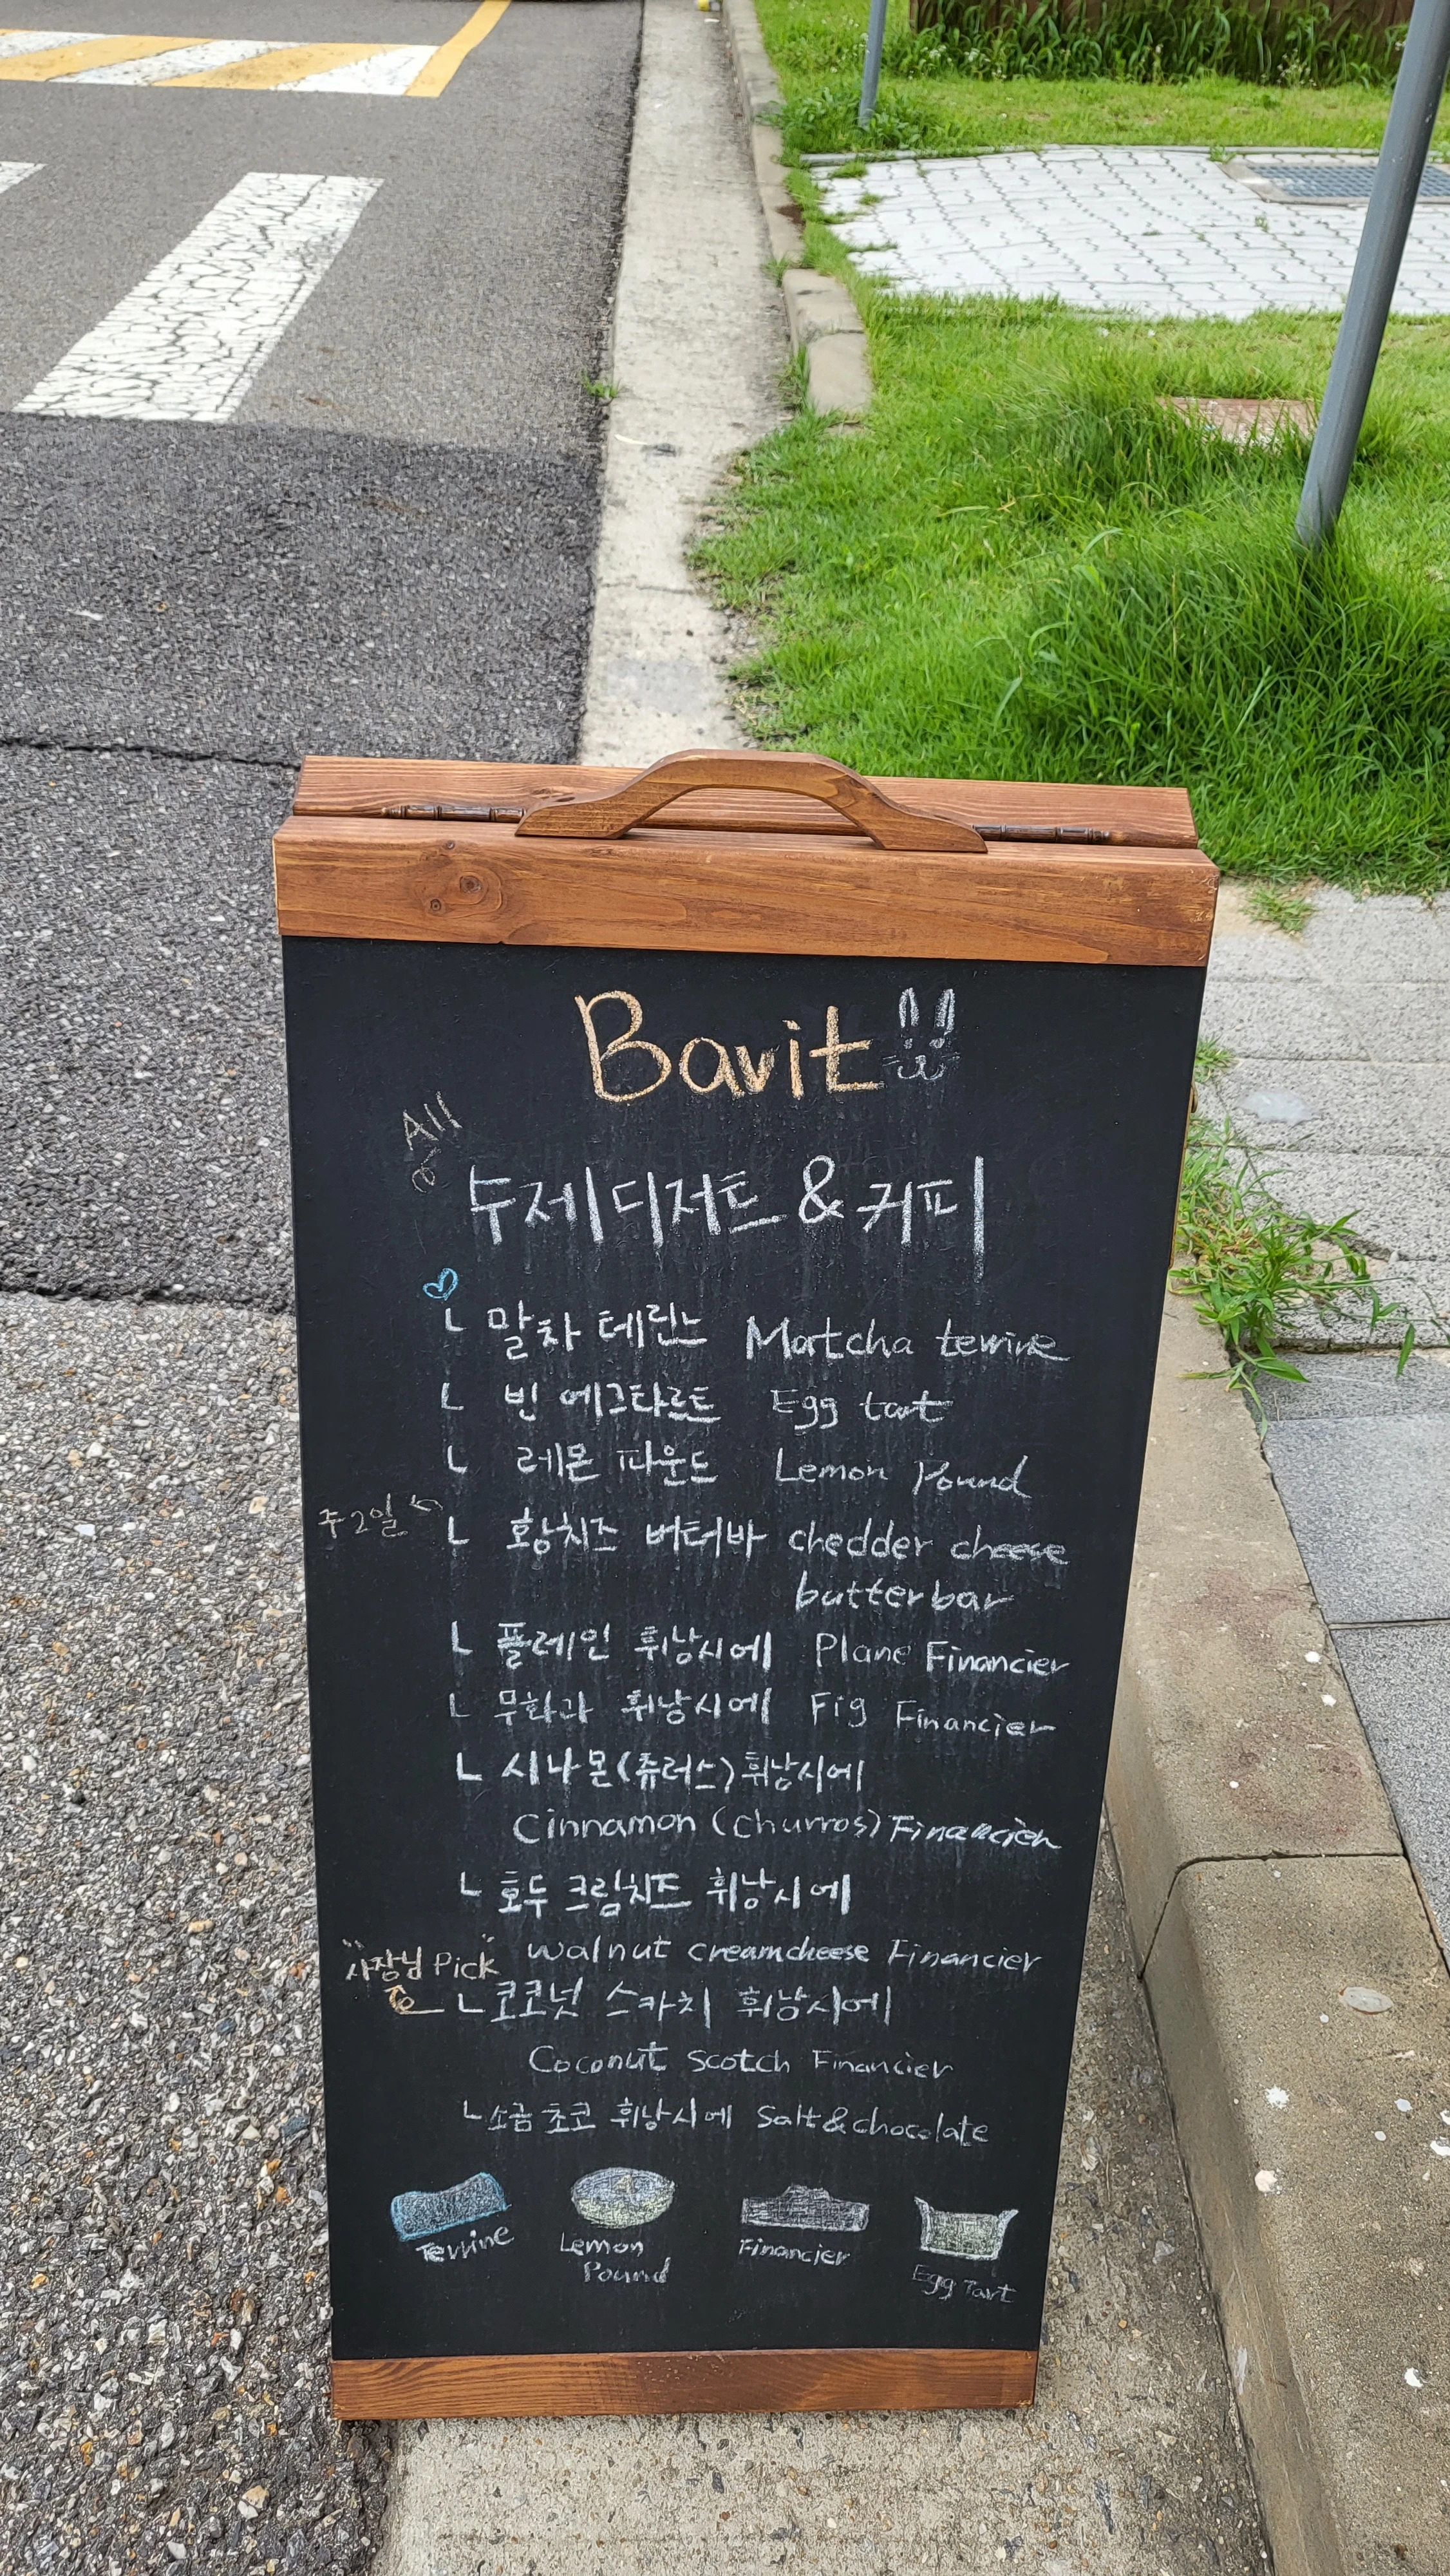 Bavit
All
수제디저트 & 커피
ㄴ 말차 테린느 Matcha terrine
ㄴ 빈 에그타르트 Egg tart
ㄴ 레몬 파운드 Lemon Pound
주2일
ㄴ 황치즈 버터바 chedder cheese
butterbar
ㄴ 플레인 휘낭시에 Plane Financier
ㄴ 무화과 휘낭시에 Fig Financier
ㄴ 시나몬(츄러스)휘낭시에
Cinnamon (Churros) Financier
ㄴ 호두 크림치즈 휘낭시에
walnut creamcheese Financier
"사장님 Pick"
ㄴ코코넛 스카치 휘낭시에
Coconut Scotch Financier
ㄴ소금 초코 휘낭시에 Salt & chocolate
Terrine
Lemon
Pound
Financier
Egg Tart